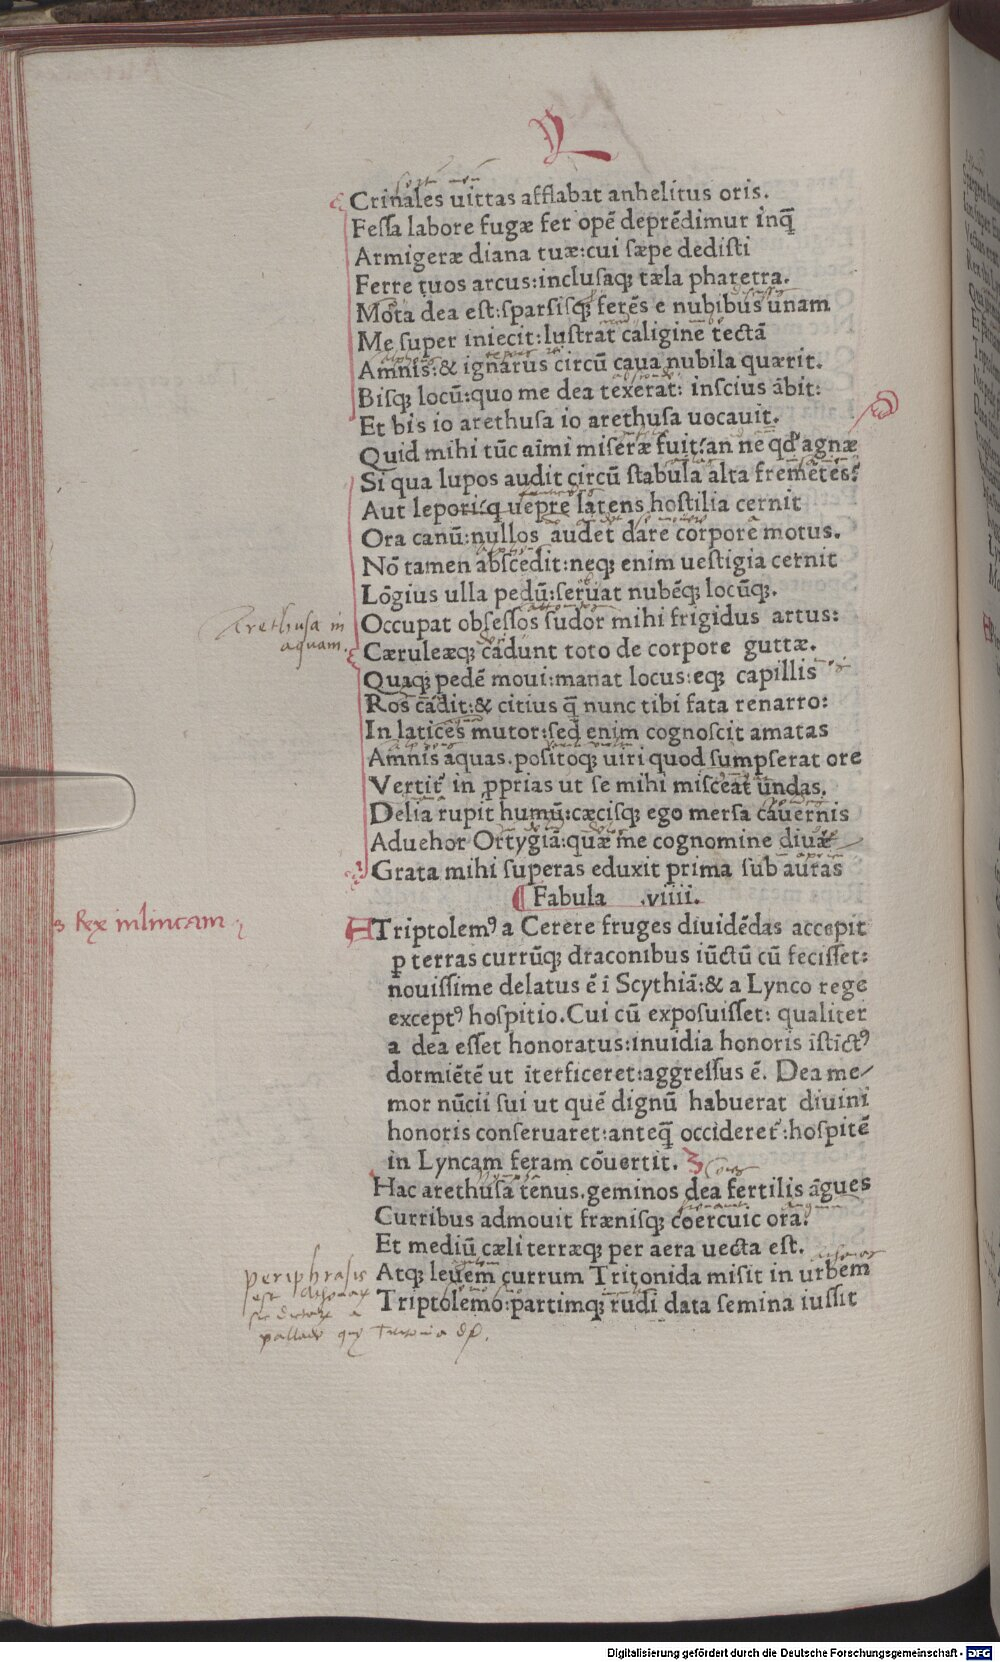 V
Crinales uittas afflabat anhelitus oris.
Feſſa labore fugæ fer opē deprēdimur inq̄
Armigeræ diana tuæ:cui ſæpe dediſti
Ferre tuos arcus:incluſaqꝫ tæla pharetra.
Mota dea eſt:ſparſiſqꝫ ferēs e nubibus unam
Me ſuper iniecit:luſtrat caligine tectā
Amnis:& ignarus circū caua nubila quærit.
Biſqꝫ locū:quo me dea texerat: inſcius ābit:
Et bis io arethuſa io arethuſa uocauit.
Quid mihi tūc aīmi miſeræ fuit?an ne qd̓ agnæ
Si qua lupos audit circū ſtabula alta fremētes?
Aut lepori:q uepre latens hoſtilia cernit
Ora canū:nullos audet dare corpore motus.
Nō tamen abſcedit:neqꝫ enim ueſtigia cernit
Lōgius ulla pedū:ſeruat nubēqꝫ locūqꝫ.
Occupat obſeſſos ſudor mihi frigidus artus:
Arethusa in
aquam.
Cæruleæqꝫ cadunt toto de corpore guttæ.
Quaqꝫ pedē moui:manat locus:eqꝫ capillis
Ros cadit:& citius q̄ nunc tibi fata renarro:
In latices mutor:ſed enim cognoſcit amatas
Amnis aquas.poſitoqꝫ uiri quod ſumpſerat ore
Vertit᷑ in ꝓprias ut ſe mihi miſceat undas.
Delia rupit humū:cæciſqꝫ ego merſa cauernis
Aduehor Ortygiā:quæ me cognomine diuæ
Grata mihi ſuperas eduxit prima ſub auras
¶ Fabula .viiii.
Rex in lincam
Triptolemꝰ a Cerere fruges diuidēdas accepit
ꝑ terras currūqꝫ draconibus iūctū cū feciſſet:
nouiſſime delatus ē i Scythiā:& a Lynco rege
exceptꝰ hoſpitio.Cui cū expoſuiſſet: qualiter
a dea eſſet honoratus:inuidia honoris iſtictꝰ
dormiētē ut iterficeret:aggreſſus ē. Dea me/
mor nūcii ſui ut quē dignū habuerat diuini
honoris conſeruaret:anteq̄ occideret᷑:hoſpitē
in Lyncam feram cōuertit.
Hac arethuſa tenus.geminos dea fertilis āgues
Curribus admouit fræniſqꝫ coercuic ora.
Et mediū cæli terræqꝫ per aera uecta eſt.
Atqꝫ leuem currum Tritonida miſit in urbem
Triptolemo:partimqꝫ rudi data ſemina iuſſit
periphrasis
est